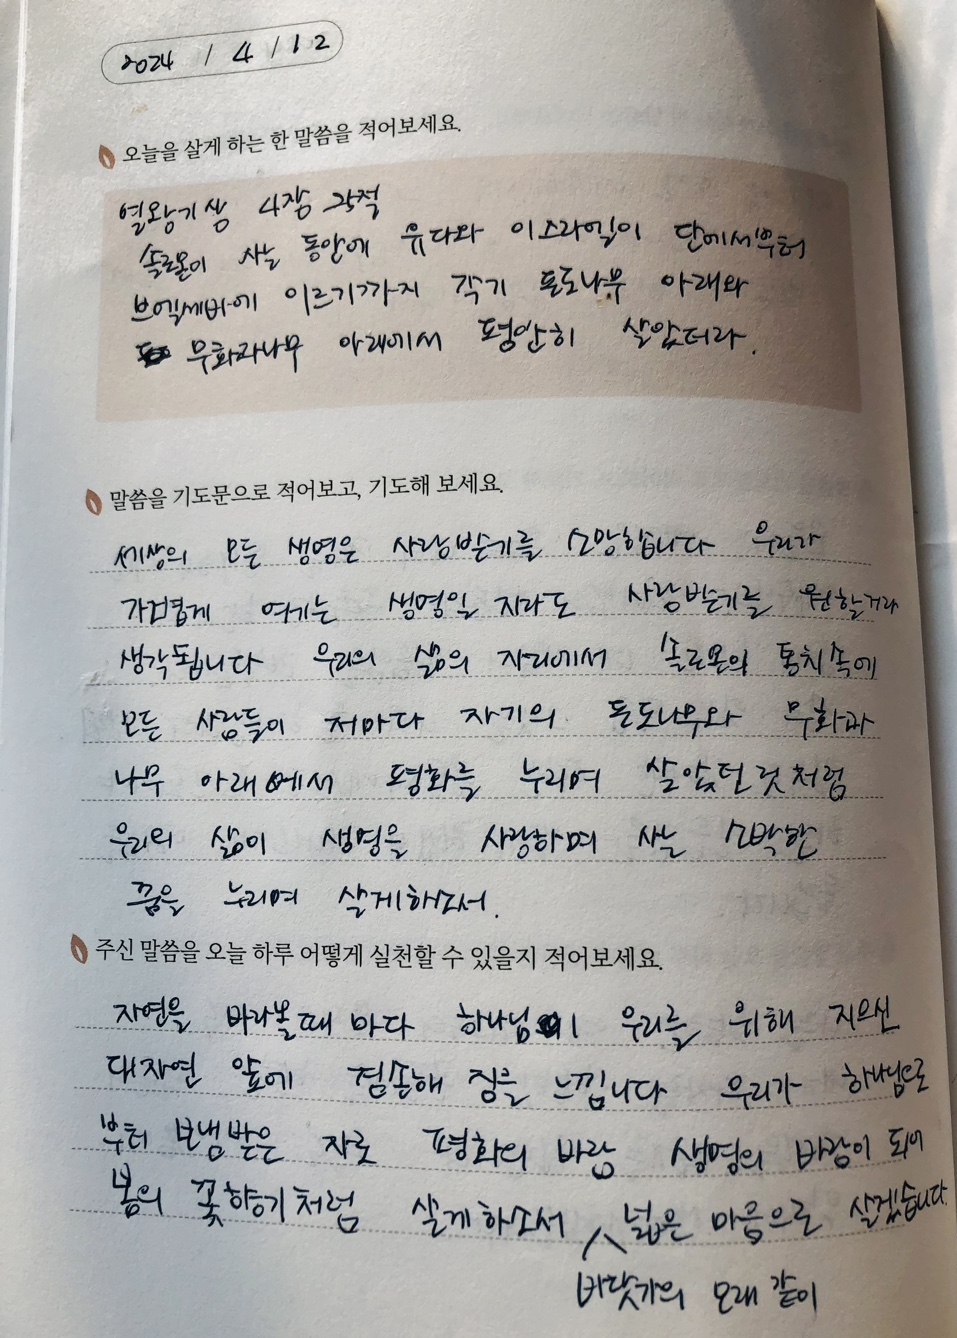 2024 / 4 / 12
오늘을 살게 하는 한 말씀을 적어보세요.
열왕기상 4장 25절
솔로몬이 사는 동안에 유다와 이스라엘이 단에서부터
브엘세바에 이르기까지 각기 포도나무 아래와
무화과나무 아래에서 평안히 살았더라.
말씀을 기도문으로 적어보고, 기도해 보세요.
세상의 모든 생명은 사랑받는기를 소망합니다 우리가
가겁홉게 여기는 생명일지라도 사랑받는기를 원할거라
생각됩니다 우리의 삶의 자리에서 솔로몬의 통치속에
모든 사람들이 저마다 자기의 포도나무와 무화과
나무 아래에서 평화를 누리며 살았던 것처럼
우리의 삶이 생명을 사랑하며 사는 소박한
꿈을 누리며 살게하소서.
주신 말씀을 오늘 하루 어떻게 실천할 수 있을지 적어보세요.
자연을 바라볼때 마다 하나님이 우리를 위해 지으신
대자연 앞에 겸손해 짐을 느낍니다 우리가 하나님으로
부터 보냄받은 자로 평화의 바람 생명의 바람이 되어
봄의 꽃향기처럼 살게하소서 넓은 마음으로 살겠습니다.
바닷가의 모래 같이